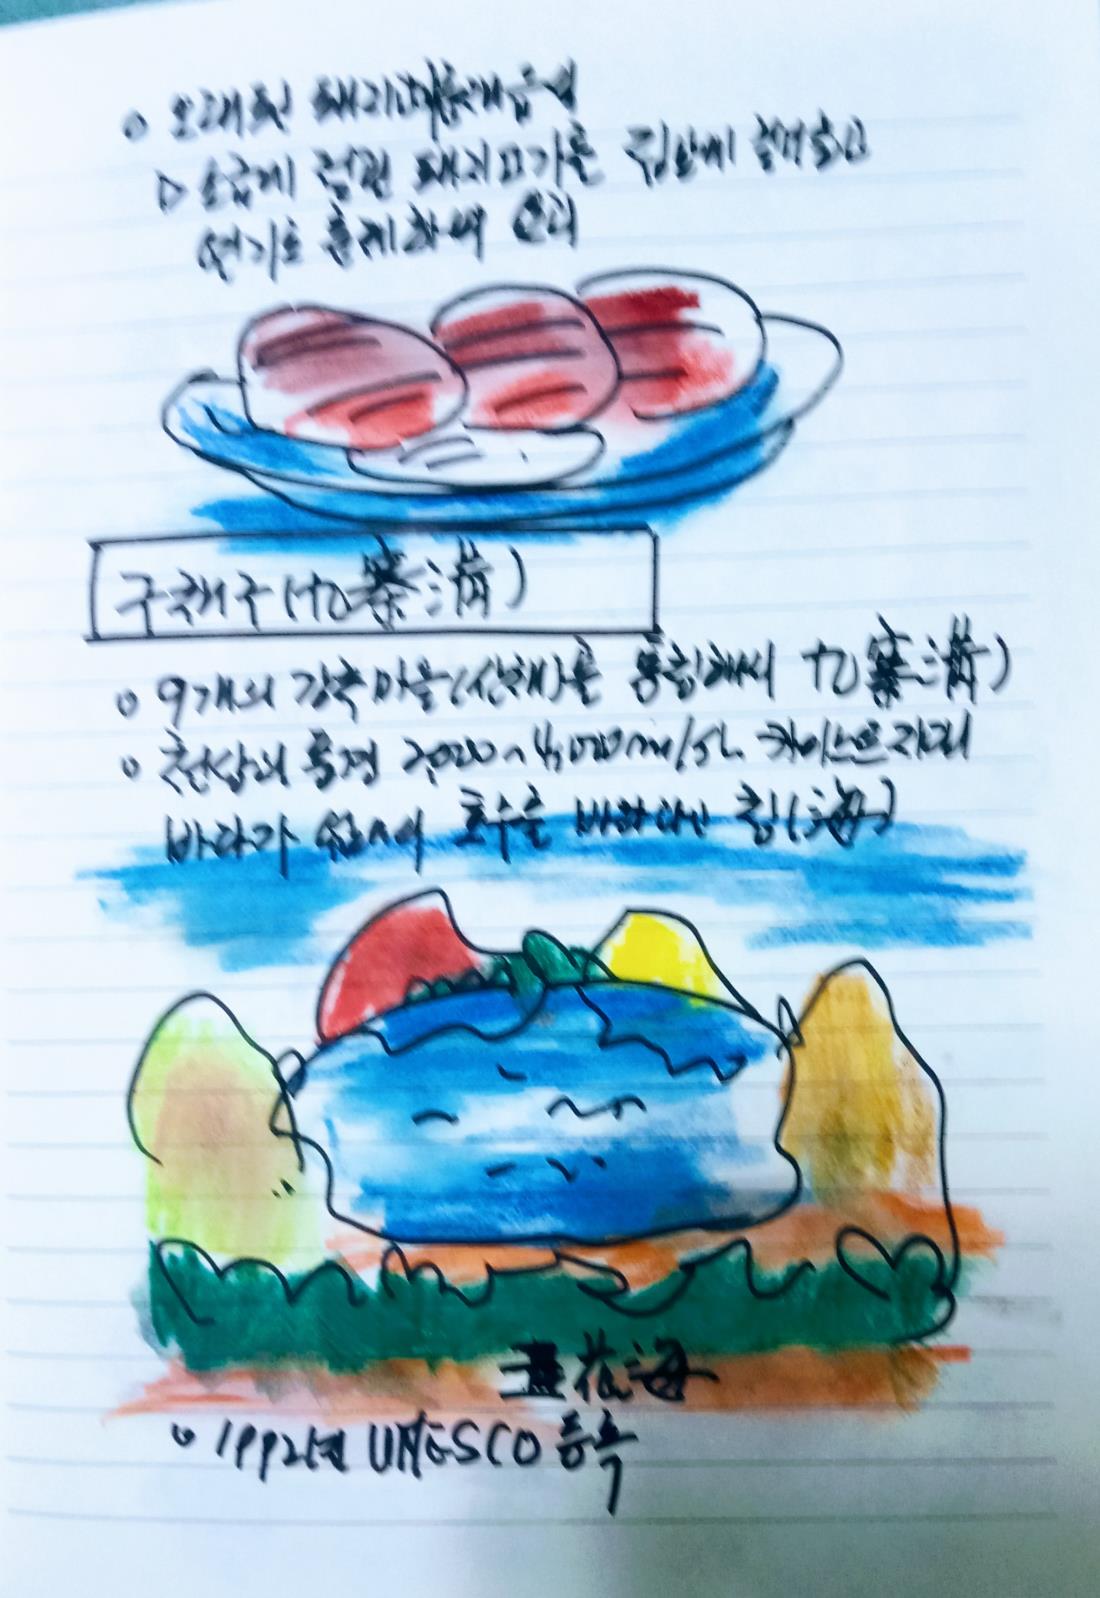 오래된 돼지
▷ 소금에 절인 돼지고기를 집안에 걸어놓고
연기로 훈제하여 요리
구채구(九寨溝)
9개의 장족마을(산채)를 통칭해서 九寨溝)
천상의 풍경 2,000~4,000m
바다가 없어서 호수를 바다라 칭(海)
五花海
1992년 UNESCO 등록